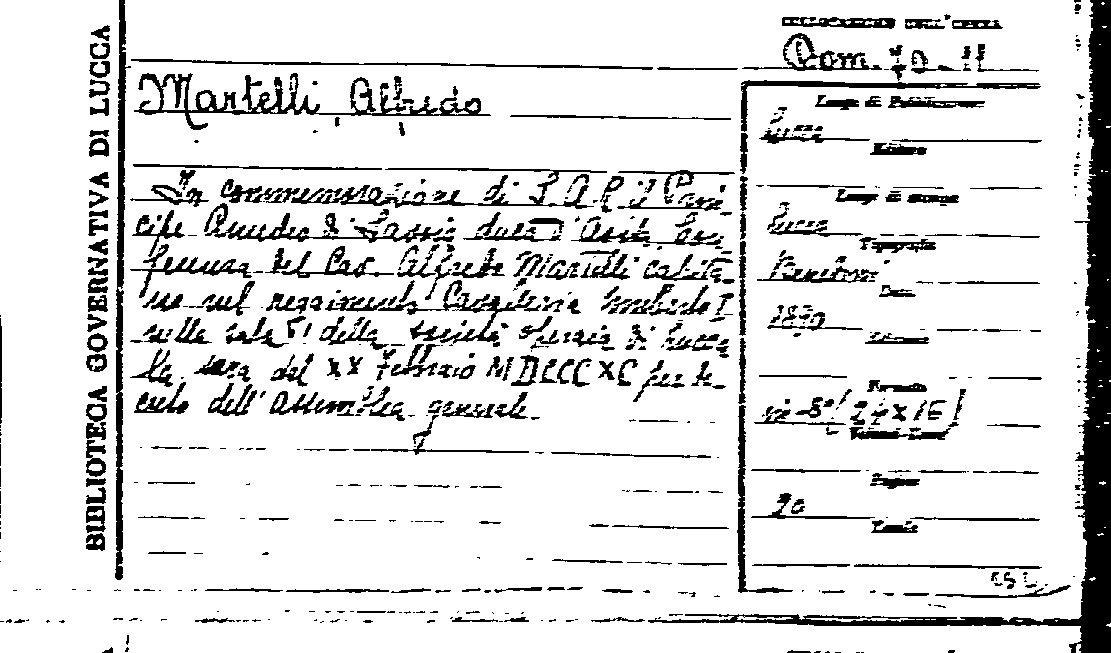 BIBLIOTECA GOVERNATIVA DI LUCCA
COLLOCAZIONE DELL'OPERA
Martelli, Alfredo
In commemorazione di S. A. R. il Prin-
cipe Amedeo di Savoia duca d'Aosta. Con
ferenza del Cav. Alfredo Martelli capita-
no nel reggimento Cavalleria Umberto I
nella sala della società operaia di Lucca
la sera del XX Febbraio MDCCCXC per
dell'Assemblea generale.
Luogo di Pubblicazione
Lucca
Editore
Luogo di stampa
Lucca
Tipografia
Data
1890
Edizione
Formato
in-8° (24x16)
Pagine
20
Tavole